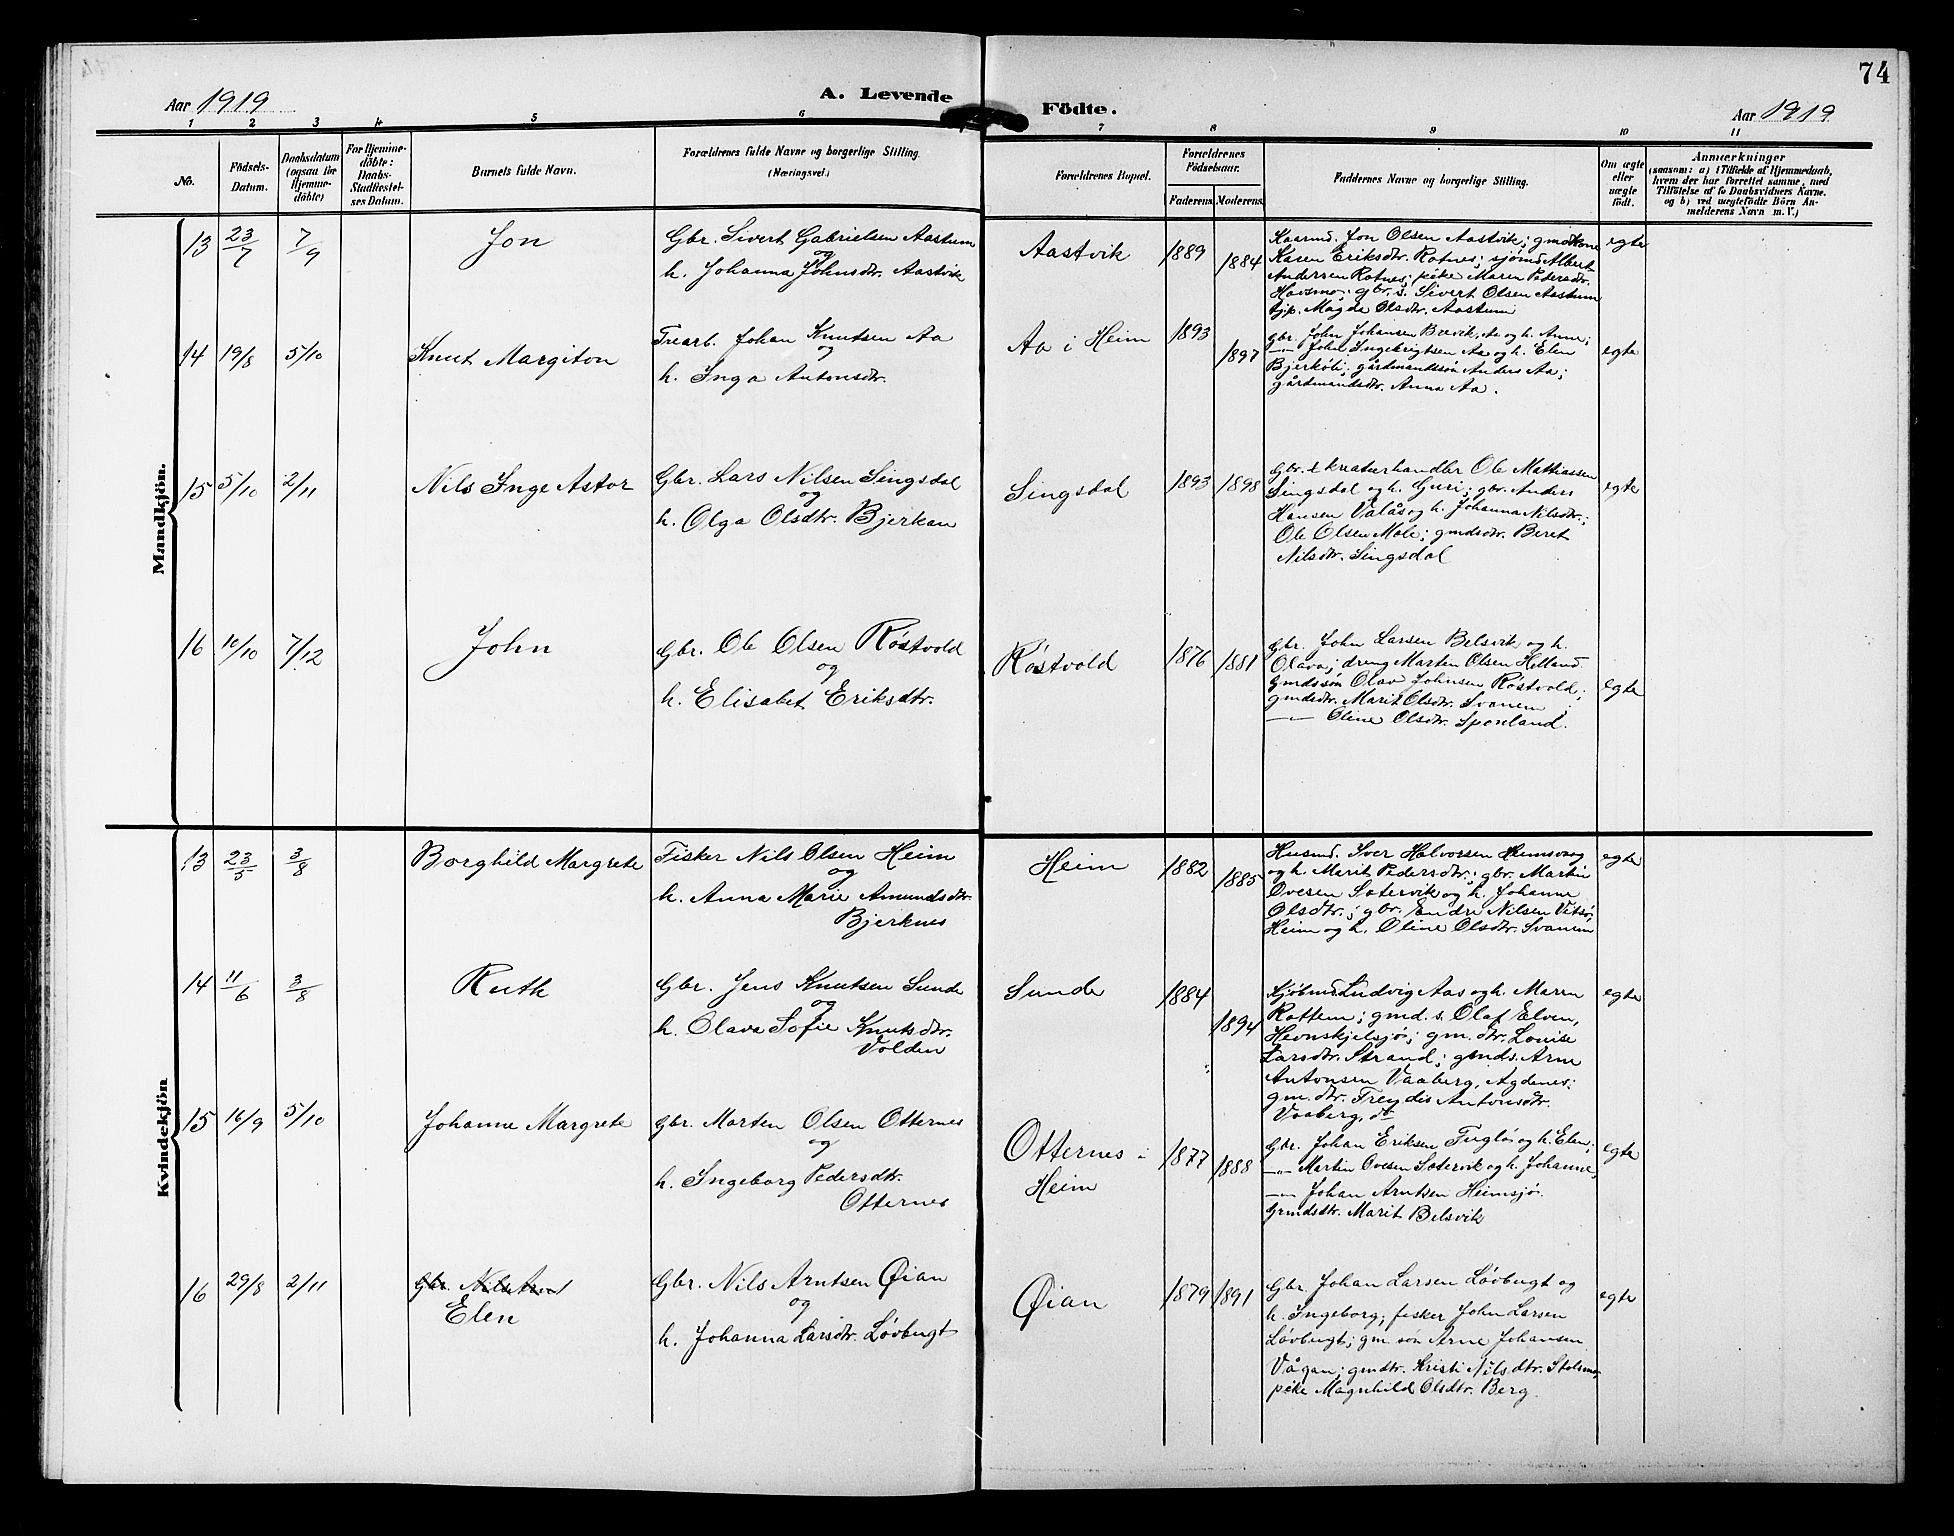 74
Aar 1919
A. Levende
Födte.
Aar 1919
1 2 3 4 5 6 7 8 9 10 11
No.
Födsels-
Datum.
Daabsdatum
(ogsaa for
Hjemme-
döbte)
For Hjemme-
döbte:
Daabs-
Stadfæstel-
ses Datum.
Barnets fulde Navn.
Forældrenes fulde Navne og borgerlige Stilling.
(Næringsvei.)
Forældrenes Bopæl.
Forældrenes
Födselsaar.
Faderens. Moderens.
Faddernes Navne og borgerlige Stilling.
Om ægte
eller
uægte
födt.
Anmærkninger
(saasom: a) i Tilfælde af Hjemmedaab,
hvem der har forrettet samme, med
Tilföielse af to Daabsvidners Navne.
og b) ved uægtefödte Börn An-
melderens Navn m. V.)
Mandkjön.
13 23/7 7/9 Jon
Gbr. Sivert Gabrielsen Aastum
og
h. Johanna Johnsdtr. Aastvik
Aastvik 1889 1884
Jon Olsen Aastvik; gmdkone
Karen Eriksdtr. Rotnes; sjömd. Albert
Andersen Rotnes; pike Maren Pedersdtr.
Havsmo; gbr. s. Sivert Olsen Aastum
tjp. Magda Olsdtr. Aastum
egte
14 19/8 5/10 Knut Margiton
Trearb. Johan Knutsen Aa
og
h. Inga Antonsdtr.
Aa i Heim 1893 1897
gbr. John Johansen Brevik, Aa og h. Anne;
—"— John Ingebrigtsen Aa og h. Elen
Bjerköli; gårdmandssön Anders Aa;
gårdmandsdtr. Anna Aa.
egte
15 5/10 2/11 Nils Inge Astor
Gbr. Lars Nilsen Singsdal
og
h. Olga Olsdtr. Bjerkan
Singsdal 1893 1898
Gbr. & kreaturhandler Ole Mathiassen
Singsdal og h. Guri; gbr. Anders
Hansen Valås og h. Johanna Nilsdtr.;
Ole Olsen Mole; gmdsdtr. Beret
Nilsdtr. Singsdal
egte
16 10/10 7/12 John
Gbr. Ole Olsen Røstvold
og
h. Elisabet Eriksdtr.
Røstvold 1876 1881
Gbr. John Larsen Belsvik og h.
Olava; dreng Marten Olsen Helland.
Gmdssön Olav Johnsen Røstvold;
gmdsdtr. Marit Olsdtr. Svanem;
—"— Oline Olsdtr. Sponland.
egte
Kvindekjön
13 23/5 3/8 Borghild Margrete
Fisker Nils Olsen Heim
og
h. Anna Marie Amundsdtr.
Bjerknes
Heim 1882 1885
Husmd. Iver Halvorsen Heimsvaag
og h. Marit Pedersdtr.; gbr. Martin
Ovesen Sætervik og h. Johanne
Olsdtr.; gbr. Endre Nilsen Vitsø,
Heim og h. Oline Olsdtr. Svanem
egte
14 11/6 3/8 Ruth
Gbr. Jens Knutsen Sunde
og
h. Olava Sofie Knutsdtr.
Volden
Sunde 1884 1894
Kjöbmd. Ludvig Aas og h. Maren
Rottem; gmd. s. Olaf Elven,
Hevnskjelsjø; gm. dtr. Louise
Larsdtr. Strand; gmds. Arne
Antonsen Vaaberg, Agdenes;
gm. dtr. Freydis Antonsdtr.
Vaaberg, do
egte
15 16/9 5/10 Johanne Margrete
Gbr. Morten Olsen Otternes
og
h. Ingeborg Pedersdtr.
Otternes
Otternes i
Heim
1877 1888
Gbr. Johan Eriksen Fuglø og h. Elen;
—"— Martin Ovesen Sætervik og h. Johanne,
—"— Johan Arntsen Heimsjø.
Grmdsdtr. Marit Belsvik
egte
16 29/8 2/11 Gbr. Nils Arnt
Elen
Gbr. Nils Arntsen Øian
og
h. Johanna Larsdtr. Løvbugt
Øian 1879 1891
Gbr. Johan Larsen Løvbugt og
h. Ingeborg; fisker John Larsen
Løvbugt; gm. sön Arne Johansen
Vågan; gmdtr. Kristi Nilsdtr. Stolsmo,
pike Magnhild Olsdtr. Berg.
egte